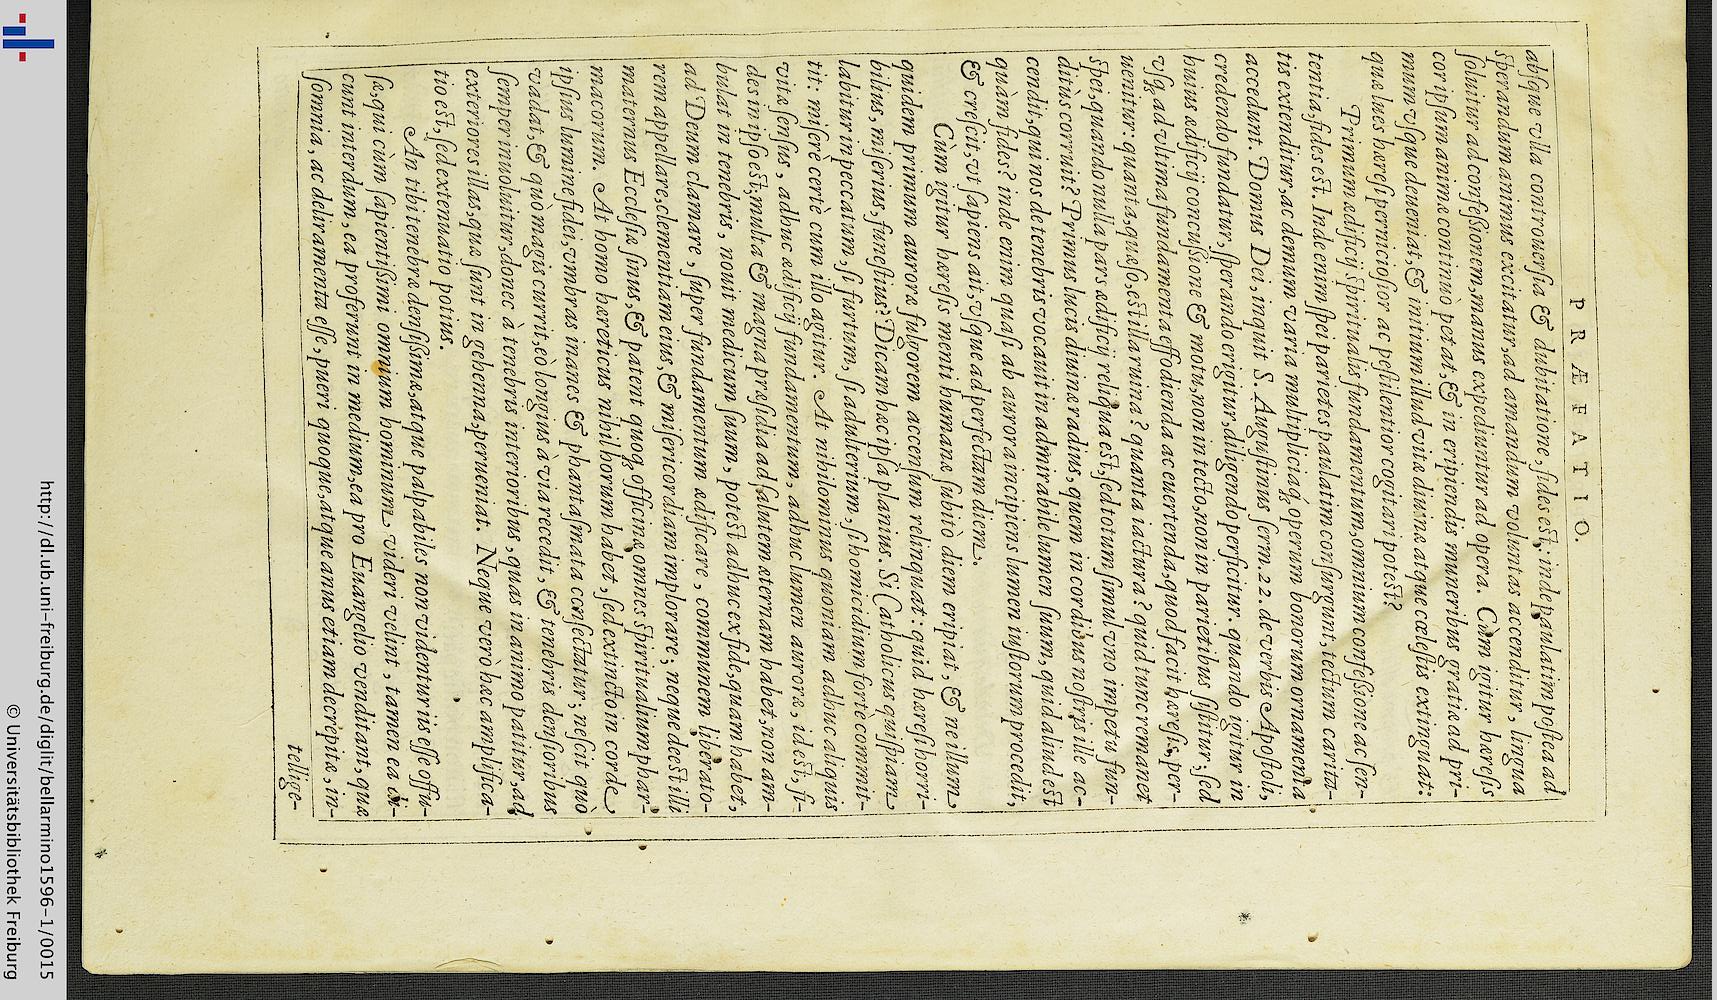 PRÆFATIO.
absque vlla controuersia & dubitatione, fides est: inde paulatim postea ad
sperandum animus excitatur, ad amandum voluntas accenditur, lingua
soluitur ad confessionem, manus expediuntur ad opera. Cùm igitur hæresis
coripsum animæ continuò petat, & in eripiendis muneribus gratiæ ad pri-
mum vsque deueniat, & initium illud vitæ diuinæ atque cælestis extinguat:
quæ lues hæresi perniciosior ac pestilentior cogitari potest?
Primum ædificij spiritualis fundamentum, omnium confessione ac sen-
tentia, fides est. Inde enim spei parietes paulatim consurgunt, tectum carita-
tis extenditur, ac demum varia multipliciaq́; operum bonorum ornamenta
accedunt. Domus Dei, inquit S. Augustinus serm. 22. de verbis Apostoli,
credendo fundatur, sperando erigitur, diligendo perficitur. quando igitur in
huius ædificij concussione & motu, non in tecto, non in parietibus sistitur; sed
vsq; ad vltima fundamenta effodienda ac euertenda, quod facit hæresis, per-
uenitur: quanta, quæso, est illa ruina? quanta iactura? quid tunc remanet
spei, quando nulla pars ædificij reliqua est, sed totum simul vno impetu fun-
ditus corruit? Primus lucis diuinæ radius, quem in cordibus nostris ille ac-
cendit, qui nos de tenebris vocauit in admirabile lumen suum, quid aliud est
quàm fides? inde enim quasi ab aurora incipiens lumen iustorum procedit,
& crescit, vt sapiens ait, vsque ad perfectam diem.
Cùm igitur hæresis menti humanæ subitò diem eripiat, & ne illum
quidem primum auroræ fulgorem accensum relinquat: quid hæresi horri-
bilius, miserius, funestius? Dicam hæc ipsa planius. Si Catholicus quispiam
labitur in peccatum, si furtum, si adulterium, si homicidium forte commit-
tit: miserè certè cum illo agitur. At nihilominus quoniam adhuc aliquis
vitæ sensus, adhuc ædificij fundamentum, adhuc lumen auroræ, id est, fi-
des in ipso est; multa & magna præsidia ad salutem æternam habet, non am-
bulat in tenebris, nouit medicum suum, potest adhuc ex fide, quam habet,
ad Deum clamare, super fundamentum ædificare, communem liberato-
rem appellare, clementiam eius, & misericordiam implorare; neque deest illi
maternus Ecclesiæ sinus, & patent quoq; officinæ omnes spiritualium phar-
macorum. At homo hæreticus nihil horum habet, sed extincto in corde
ipsius lumine fidei, vmbras inanes & phantasmata consectatur; nescit quò
vadat, & quò magis currit, eò longius à via recedit, & tenebris densioribus
semper inuoluitur, donec à tenebris interioribus, quas in animo patitur, ad
exteriores illas, quæ sunt in gehenna, perueniat. Neque verò hæc amplifica-
tio est, sed extenuatio potius.
An tibi tenebræ densissimæ, atque palpabiles non videntur iis esse offu-
sæ, qui cùm sapientissimi omnium hominum videri velint, tamen ea di-
cunt interdum, ea proferunt in medium, ea pro Euangelio venditant, quæ
somnia, ac deliramenta esse, pueri quoque, atque anus etiam decrepitæ, in-
tellige-
http://dl.ub.uni-freiburg.de/diglit/bellarmino1596-1/0015
© Universitätsbibliothek Freiburg